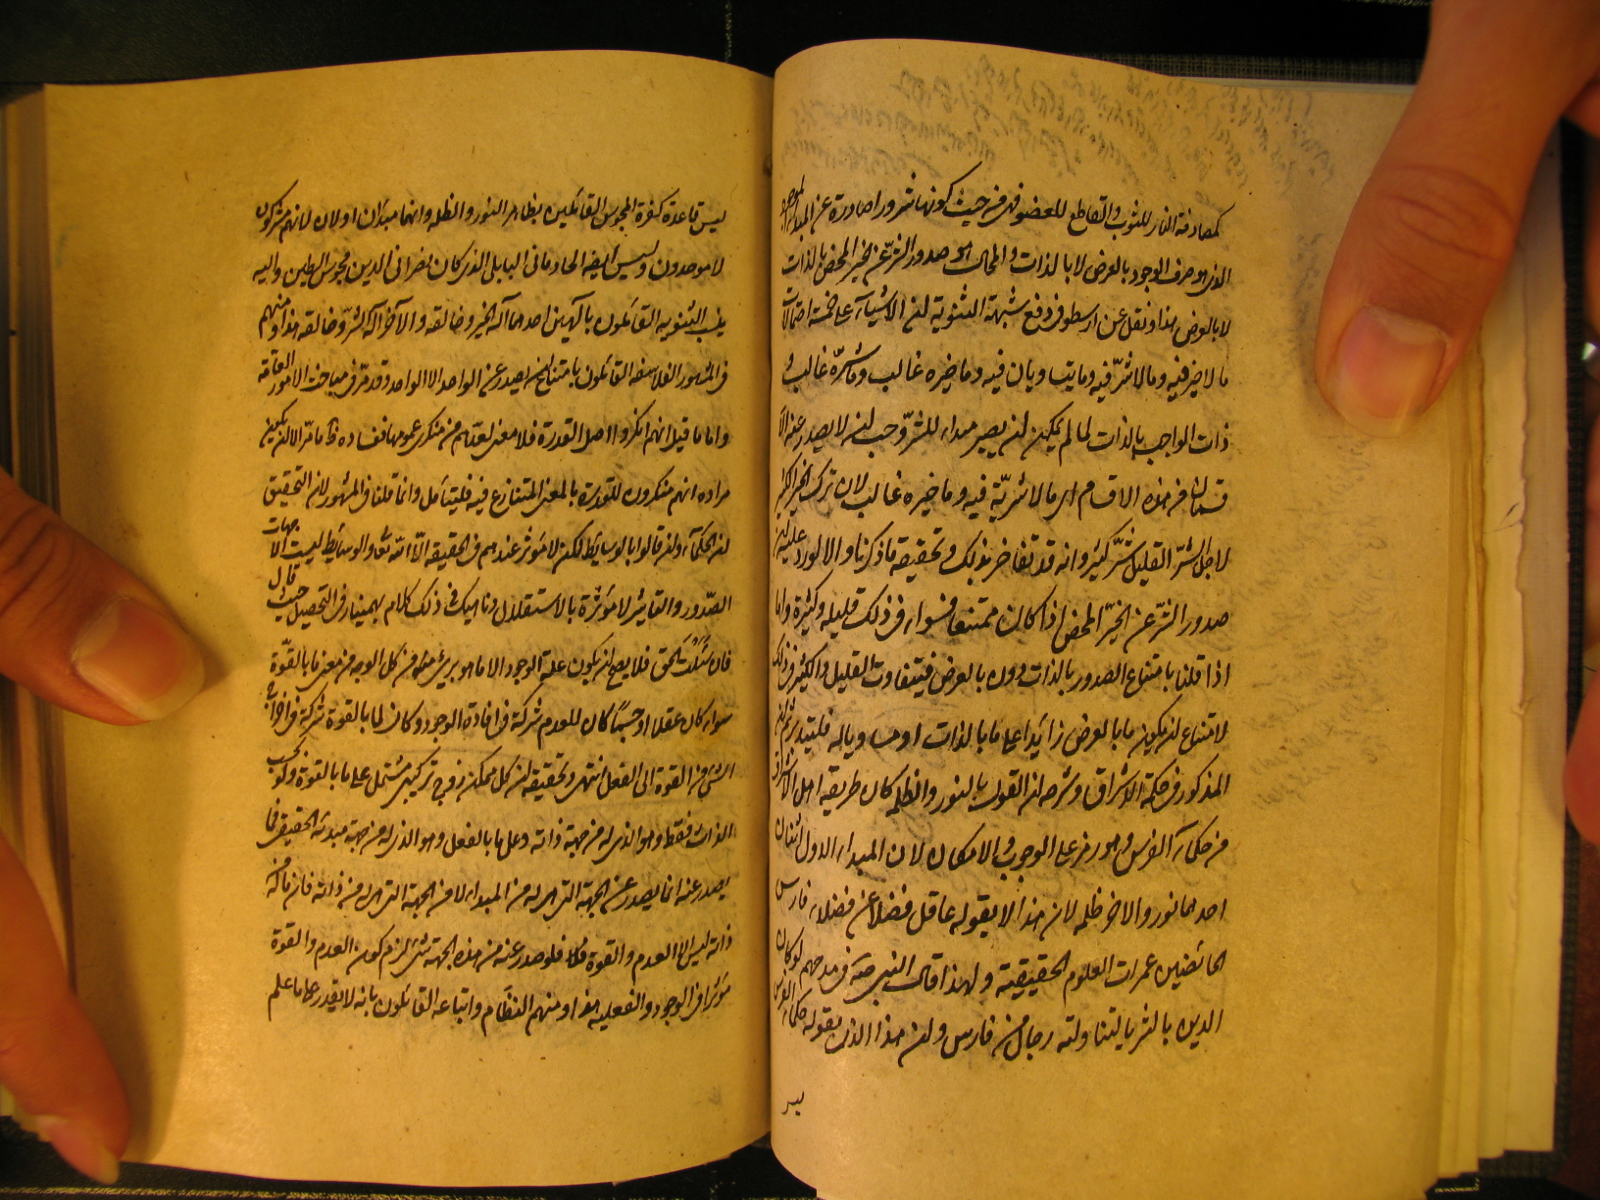 كمصادفة النار للثوب والقاطع للعضو فهى من حيث كونها شرورا صادرة عن المبدء الموجود
الذى هو صرف الوجود بالعرض لا بالذات والمحال هو صدور الشر عن الخير المحض بالذات
لا بالعرض هذا ونقل عن ارسطو فى دفع شبهة الثنوية ان الاشياء على خمسة احتمالات
ما لا خير فيه وما لا شر فيه وما يتساويان فيه وما خيره غالب وما شره غالب و
ذات الواجب بالذات لما لم يمكن ان يصير مبداء للشر وجب ان لا يصدر عنه الا
قسمان من هذه الاقسام اى ما لا شرية فيه وما خيره غالب لان ترك الخير الكثير
لاجل الشر القليل شر كثير وانه قد تفاخر بذلك وتحقيقه ما ذكرنا والا لورد عليه ان
صدور الشر عن الخير المحض اذا كان ممتنعا فسواء فى ذلك قليله وكثيره واما
اذا قلنا بامتناع الصدور بالذات دون بالعرض فيتفاوت القليل والكثير فى ذلك
لامتناع ان يكون ما بالعرض زائدا على ما بالذات او مساويا له فليتدبر ثم ان
المذكور فى حكمة الاشراق وشرحه ان القول بالنور والظلمة كان طريقة اهل الاشراق
من حكماء الفرس وهو رمز على الوجوب والامكان لان المبداء الاول اثنان
احدهما نور والاخر ظلمة لان هذا لا يقوله عاقل فضلا عن فضلاء فارس
الخائضين غمرات العلوم الحقيقية ولهذا قال النبى ص فى مدحهم لو كان
الدين بالثريا لتناولته رجال من فارس وان هذا الذى يقوله حكماء الفرس
ليس
ليس قاعدة كفرة المجوس القائلين بظاهر النور والظلمة وانهما مبدآن اولان لانهم مشركون
لا موحدون وليس ايضا الحاد مانى البابلى الذى كان نصرانى الدين مجوسى الطين واليه
ينسب الثنوية القائلون بآلهين احدهما آله الخير وخالقه والآخر آله الشر وخالقه هذا ومنهم
فى المشهور الفلاسفة القائلون بامتناع ان يصدر عن الواحد الا الواحد وقد مر فى مباحث الامور العامة
واما ما قيل انهم انكروا اصل القدرة فلا معنى لعدهم من منكرى عمومها ففساده ظ مما مر الا ان يكون
مراده انهم منكرون للقدرة بالمعنى المتنازع فيه فليتأمل وانما قلنا فى المشهور لان التحقيق
ان الحكماء وان قالوا بالوسايط لكن لا مؤثر عندهم فى الحقيقة الا الله تعالى والوسايط ليست الا جهات
الصدور والتأثير لا مؤثرة بالاستقلال وناهيك فى ذلك كلام بهمنيار فى التحصيل حيث قال
فان سئلت الحق فلا يصح ان يكون علة الوجود الا ما هو برئ من كل الوجه من معنى ما بالقوة
سواء كان عقلا او جسما كان للعدم شركة فى افادة الوجود وكان لما بالقوة شركة فى اخراج
الشئ من القوة الى الفعل انتهى وتحقيقه ان كل ممكن زوج تركيبى مشتمل على ما بالقوة وكونه بحسب
الذات فقط وهو الذى له من جهة ذاته وعلى ما بالفعل وهو الذى له من جهة مبدئه الحقيقى فما
يصدر عنه انما يصدر عن الجهة التى له من المبداء لا من الجهة التى له من ذاته فان ما له من
ذاته ليس الا العدم والقوة فلو صدر عنه من هذه الجهة شئ لزم كون العدم والقوة
مؤثرا فى الوجود والفعلية هذا ومنهم النظام واتباعه القائلون بانه لا يقدر على ما علم